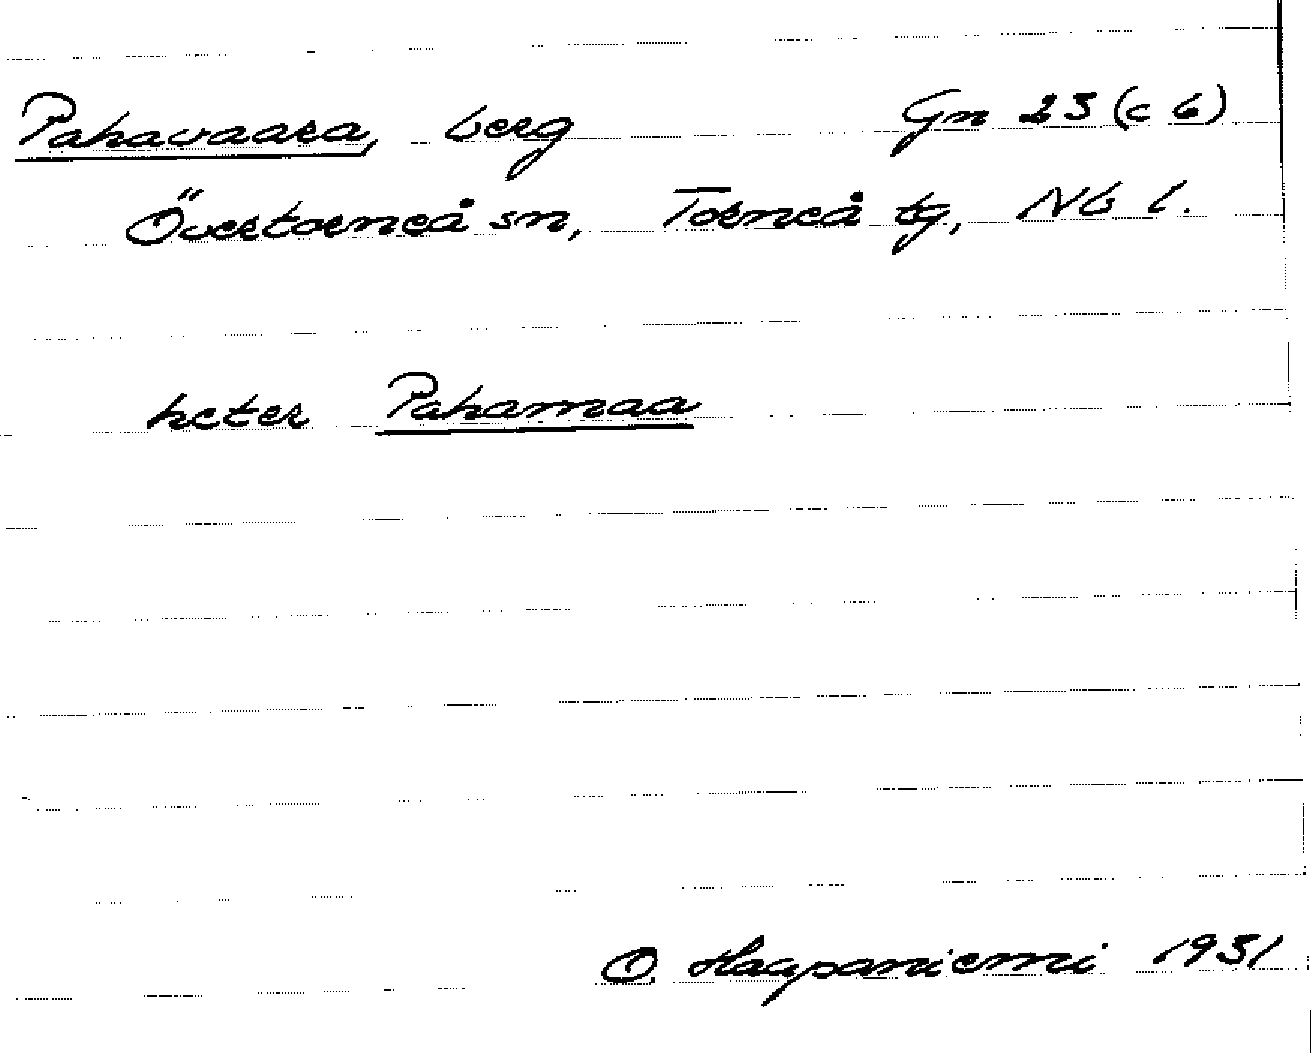 Pahavaara, berg Gn 23 (c 6)
Övertorneå sn, Torneå tg, Nb l.
heter Pahamaa
O. Haapaniemi 1931